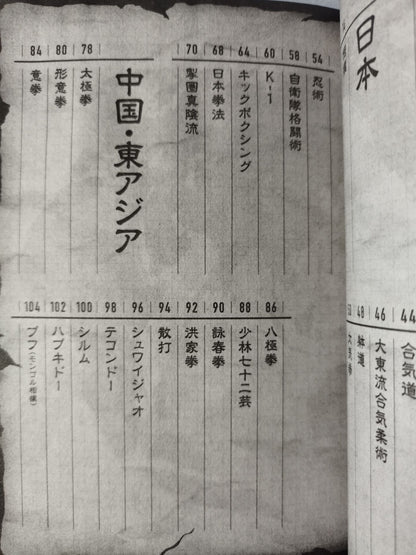 日本
44 合気道
46 大東流合気柔術
48 躰道
54 忍術
58 自衛隊格闘術
60 K-1
64 キックボクシング
68 日本拳法
70 掣圏真陰流
中国・東アジア
78 太極拳
80 形意拳
84 意拳
86 八極拳
88 少林七十二芸
90 詠春拳
92 洪家拳
94 散打
96 シュワイジャオ
98 テコンドー
100 シルム
102 ハプキドー
104 ブフ(モンゴル相撲)